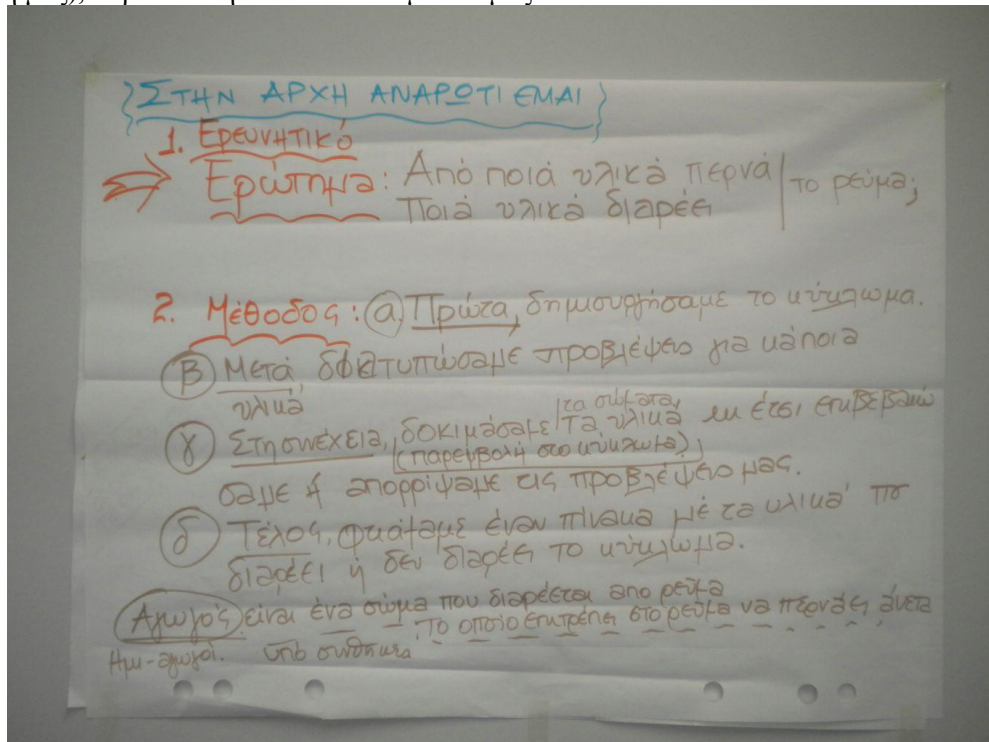 {ΣΤΗΝ ΑΡΧΗ ΑΝΑΡΩΤΙΕΜΑΙ}
1. Ερευνητικό
Ερώτημα: Από ποιά υλικά περνά
Ποιά υλικά διαρέει
το ρεύμα;
2. Μέθοδος: α. Πρώτα, δημιουργήσαμε το κύκλωμα.
β Μετά διατυπώσαμε προβλέψεις για κάποια
υλικά
τα σώματα,
γ Στη συνέχεια, δοκιμάσαμε τα υλικά και έτσι επιβεβαιώ
(παρεμβολή στο κύκλωμα)
σαμε ή απορρίψαμε τις προβλέψεις μας.
δ Τέλος, φτιάξαμε έναν πίνακα με τα υλικά πο
διαρέει ή δεν διαρέει το κύκλωμα.
Αγωγός είναι ένα σώμα που διαρέεται απο ρεύμα
το οποίο επιτρέπει στο ρεύμα να περνάει άνετα
Ημι-αγωγοί. υπό συνθήκες